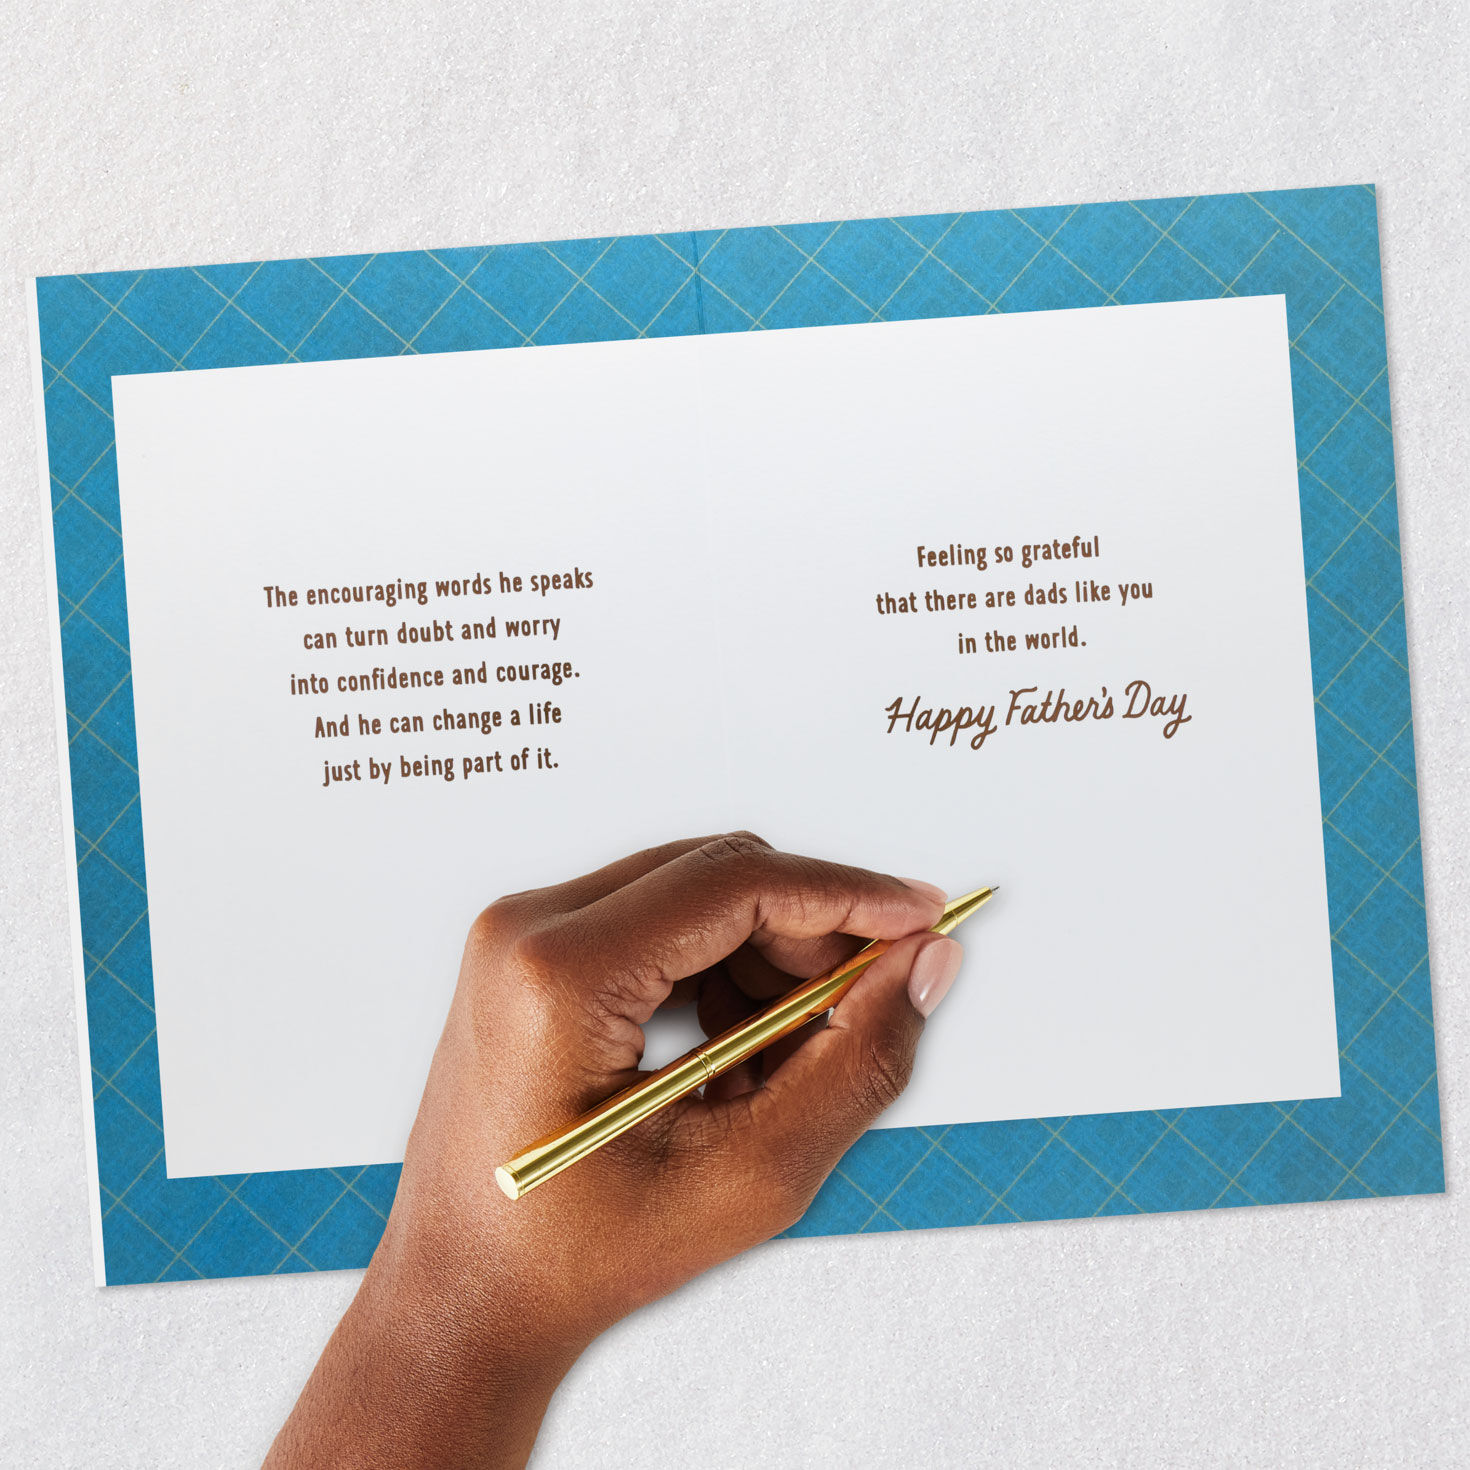 The encouraging words he speaks
can turn doubt and worry
into confidence and courage.
And he can change a life
just by being part of it.
Feeling so grateful
that there are dads like you
in the world.
Happy Father's Day